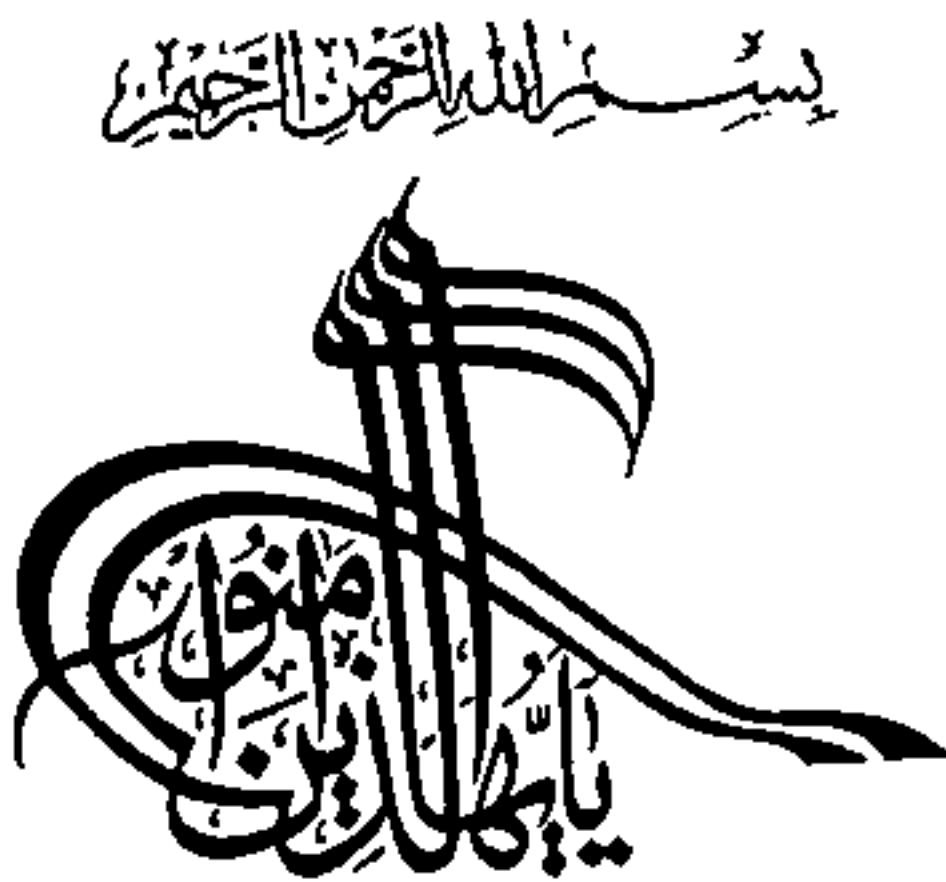 بِسْمِ اللهِ الرَّحْمٰنِ الرَّحِيمِ
يَا أَيُّهَا الَّذِينَ آمَنُوا